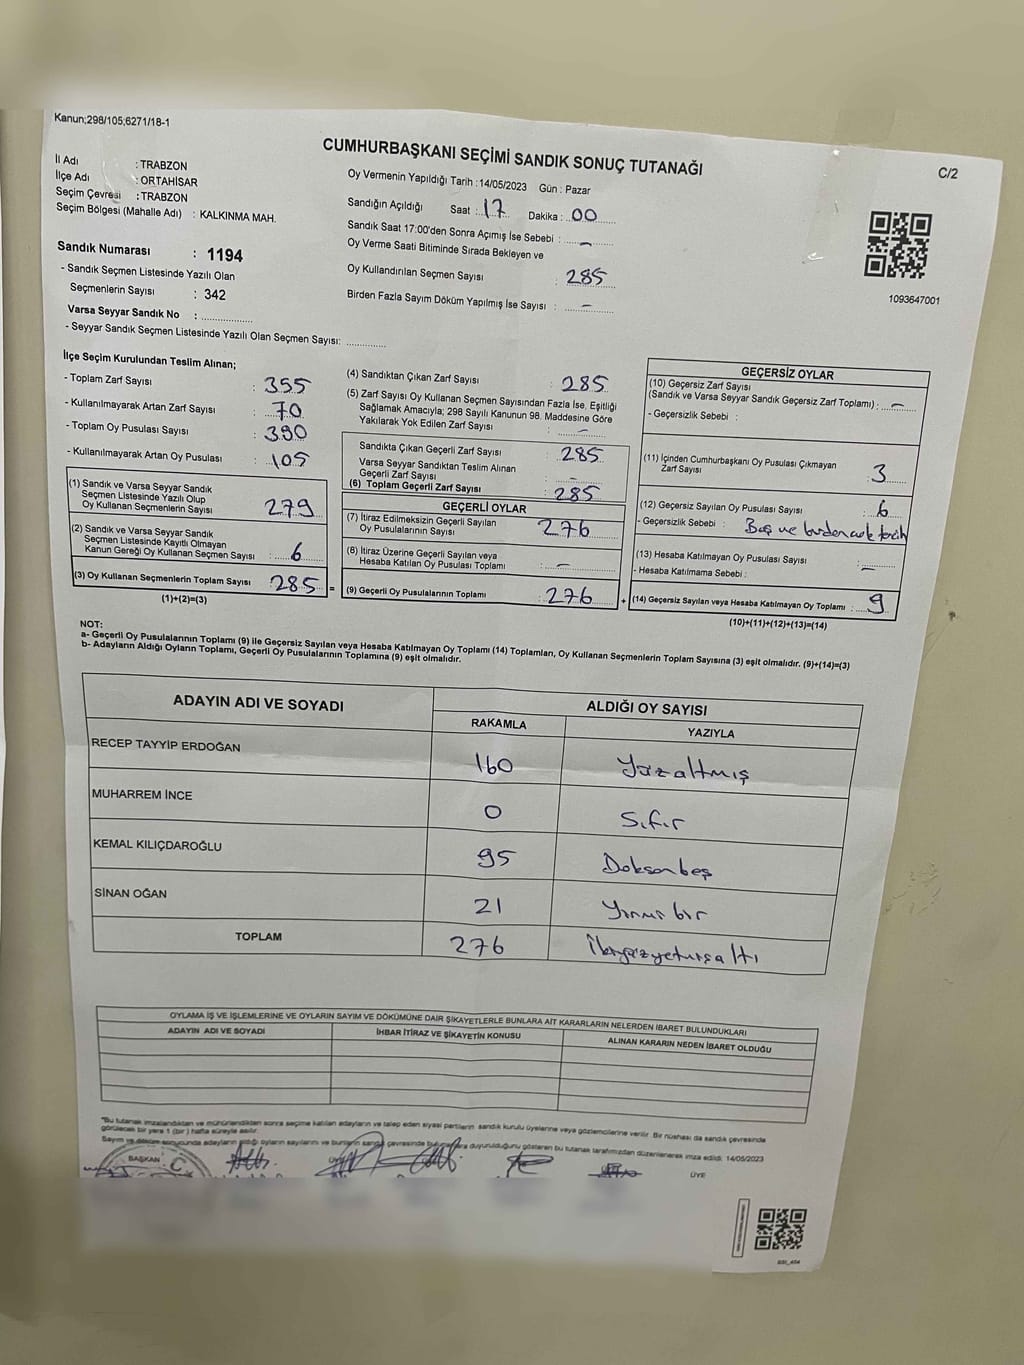 Kanun;298/105;6271/18-1
CUMHURBAŞKANI SEÇİMİ SANDIK SONUÇ TUTANAĞI
C/2
İl Adı : TRABZON
İlçe Adı : ORTAHİSAR
Seçim Çevresi : TRABZON
Seçim Bölgesi (Mahalle Adı) : KALKINMA MAH.
Oy Vermenin Yapıldığı Tarih :14/05/2023 Gün : Pazar
Sandığın Açıldığı Saat : 17 Dakika : 00
Sandık Saat 17:00'den Sonra Açımış İse Sebebi : –
Oy Verme Saati Bitiminde Sırada Bekleyen ve
Oy Kullandırılan Seçmen Sayısı : 285
Birden Fazla Sayım Döküm Yapılmış İse Sayısı : –
1093647001
Sandık Numarası : 1194
- Sandık Seçmen Listesinde Yazılı Olan
Seçmenlerin Sayısı : 342
Varsa Seyyar Sandık No :
- Seyyar Sandık Seçmen Listesinde Yazılı Olan Seçmen Sayısı:
İlçe Seçim Kurulundan Teslim Alınan;
- Toplam Zarf Sayısı : 355
- Kullanılmayarak Artan Zarf Sayısı : 70
- Toplam Oy Pusulası Sayısı : 390
- Kullanılmayarak Artan Oy Pusulası : 105
(1) Sandık ve Varsa Seyyar Sandık
Seçmen Listesinde Yazılı Olup
Oy Kullanan Seçmenlerin Sayısı : 279
(2) Sandık ve Varsa Seyyar Sandık
Seçmen Listesinde Kayıtlı Olmayan
Kanun Gereği Oy Kullanan Seçmen Sayısı : 6
(3) Oy Kullanan Seçmenlerin Toplam Sayısı : 285 =
(1)+(2)=(3)
(4) Sandıktan Çıkan Zarf Sayısı : 285
(5) Zarf Sayısı Oy Kullanan Seçmen Sayısından Fazla İse, Eşitliği
Sağlamak Amacıyla; 298 Sayılı Kanunun 98. Maddesine Göre
Yakılarak Yok Edilen Zarf Sayısı : –
Sandıkta Çıkan Geçerli Zarf Sayısı : 285
Varsa Seyyar Sandıktan Teslim Alınan
Geçerli Zarf Sayısı : –
(6) Toplam Geçerli Zarf Sayısı : 285
GEÇERLİ OYLAR
(7) İtiraz Edilmeksizin Geçerli Sayılan
Oy Pusulalarının Sayısı : 276
(8) İtiraz Üzerine Geçerli Sayılan veya
Hesaba Katılan Oy Pusulası Toplamı : –
(9) Geçerli Oy Pusulalarının Toplamı : 276 +
GEÇERSİZ OYLAR
(10) Geçersiz Zarf Sayısı
(Sandık ve Varsa Seyyar Sandık Geçersiz Zarf Toplamı) : –
- Geçersizlik Sebebi :
(11) İçinden Cumhurbaşkanı Oy Pusulası Çıkmayan
Zarf Sayısı : 3
(12) Geçersiz Sayılan Oy Pusulası Sayısı : 6
- Geçersizlik Sebebi : Boş ve birden çok tercih
(13) Hesaba Katılmayan Oy Pusulası Sayısı : –
- Hesaba Katılmama Sebebi :
(14) Geçersiz Sayılan veya Hesaba Katılmayan Oy Toplamı : 9
(10)+(11)+(12)+(13)=(14)
NOT:
a- Geçerli Oy Pusulalarının Toplamı (9) ile Geçersiz Sayılan veya Hesaba Katılmayan Oy Toplamı (14) Toplamları, Oy Kullanan Seçmenlerin Toplam Sayısına (3) eşit olmalıdır. (9)+(14)=(3)
b- Adayların Aldığı Oyların Toplamı, Geçerli Oy Pusulalarının Toplamına (9) eşit olmalıdır.
ADAYIN ADI VE SOYADI
ALDIĞI OY SAYISI
RAKAMLA YAZIYLA
RECEP TAYYİP ERDOĞAN 160 Yüzaltmış
MUHARREM İNCE 0 Sıfır
KEMAL KILIÇDAROĞLU 95 Doksanbeş
SİNAN OĞAN 21 Yirmi bir
TOPLAM 276 İkiyüzyetmişaltı
OYLAMA İŞ VE İŞLEMLERİNE VE OYLARIN SAYIM VE DÖKÜMÜNE DAİR ŞİKAYETLERLE BUNLARA AİT KARARLARIN NELERDEN İBARET BULUNDUKLARI
ADAYIN ADI VE SOYADI İHBAR İTİRAZ VE ŞİKAYETİN KONUSU ALINAN KARARIN NEDEN İBARET OLDUĞU
"Bu tutanak imzalandıktan ve mühürlendikten sonra seçime katılan adayların ve talep eden siyasi partilerin sandık kurulu üyelerine veya gözlemcilerine verilir. Bir nüshası da sandık çevresinde
görülecek bir yere 1 (bir) hafta süreyle asılır.
Sayım ve döküm sonucunda adayların aldığı oyların sayılarını ve bunların sandık çevresinde duyurulduğunu gösteren bu tutanak tarafımızdan düzenlenerek imza edildi. 14/05/2023
BAŞKAN
ÜYE